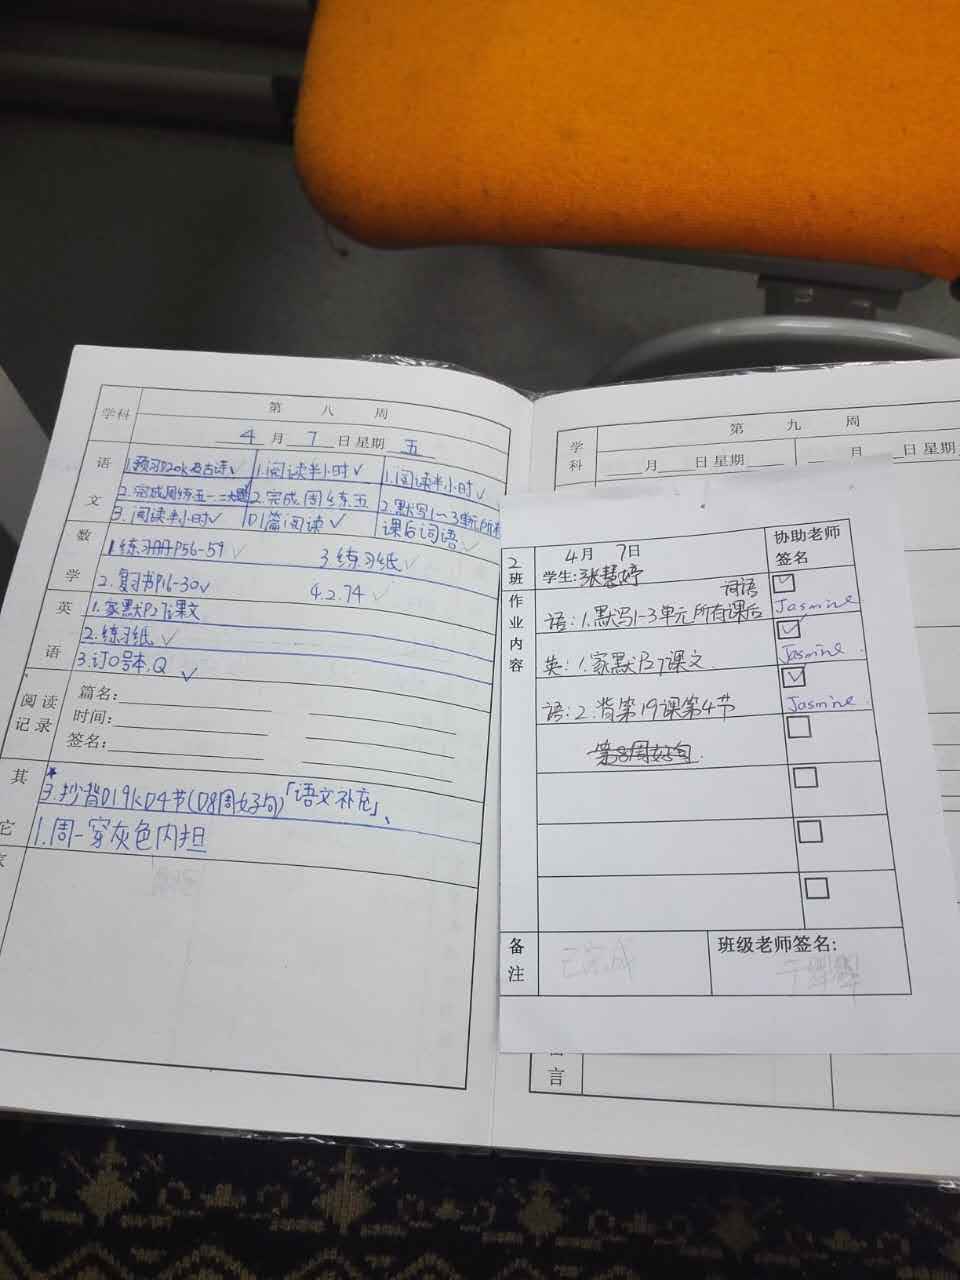 学科
第 八 周
4 月 7 日 星期 五
语文
1.预习D20k及古诗✓
2.完成周练五一、二大题
3.阅读半小时✓
1.阅读半小时✓
2.完成周练五
D1篇阅读✓
1.阅读半小时✓
2.默写1~3单元所有
课后词语✓
数学
1.练习册P56-59✓
3.练习纸✓
2.复习书P16-30✓
4.2.74✓
英语
1.家默P27课文
2.练习纸✓
3.订0号本.Q ✓
阅读记录
篇名:
时间:
签名:
其它
★
3.抄背D19kD4节(D8周好句)「语文补充」、
1.周一穿灰色内担
学科
第 九 周
月 日 星期
月
2班
4月 7日
学生:张慧婷
协助老师
签名
作业内容
词语
语:1.默写1-3单元所有课后
Jasmine
英:1.家默P27课文.
Jasmine.
语:2.背第19课第4节
Jasmine.
第8周好句.
备注
已完成
班级老师签名:
言